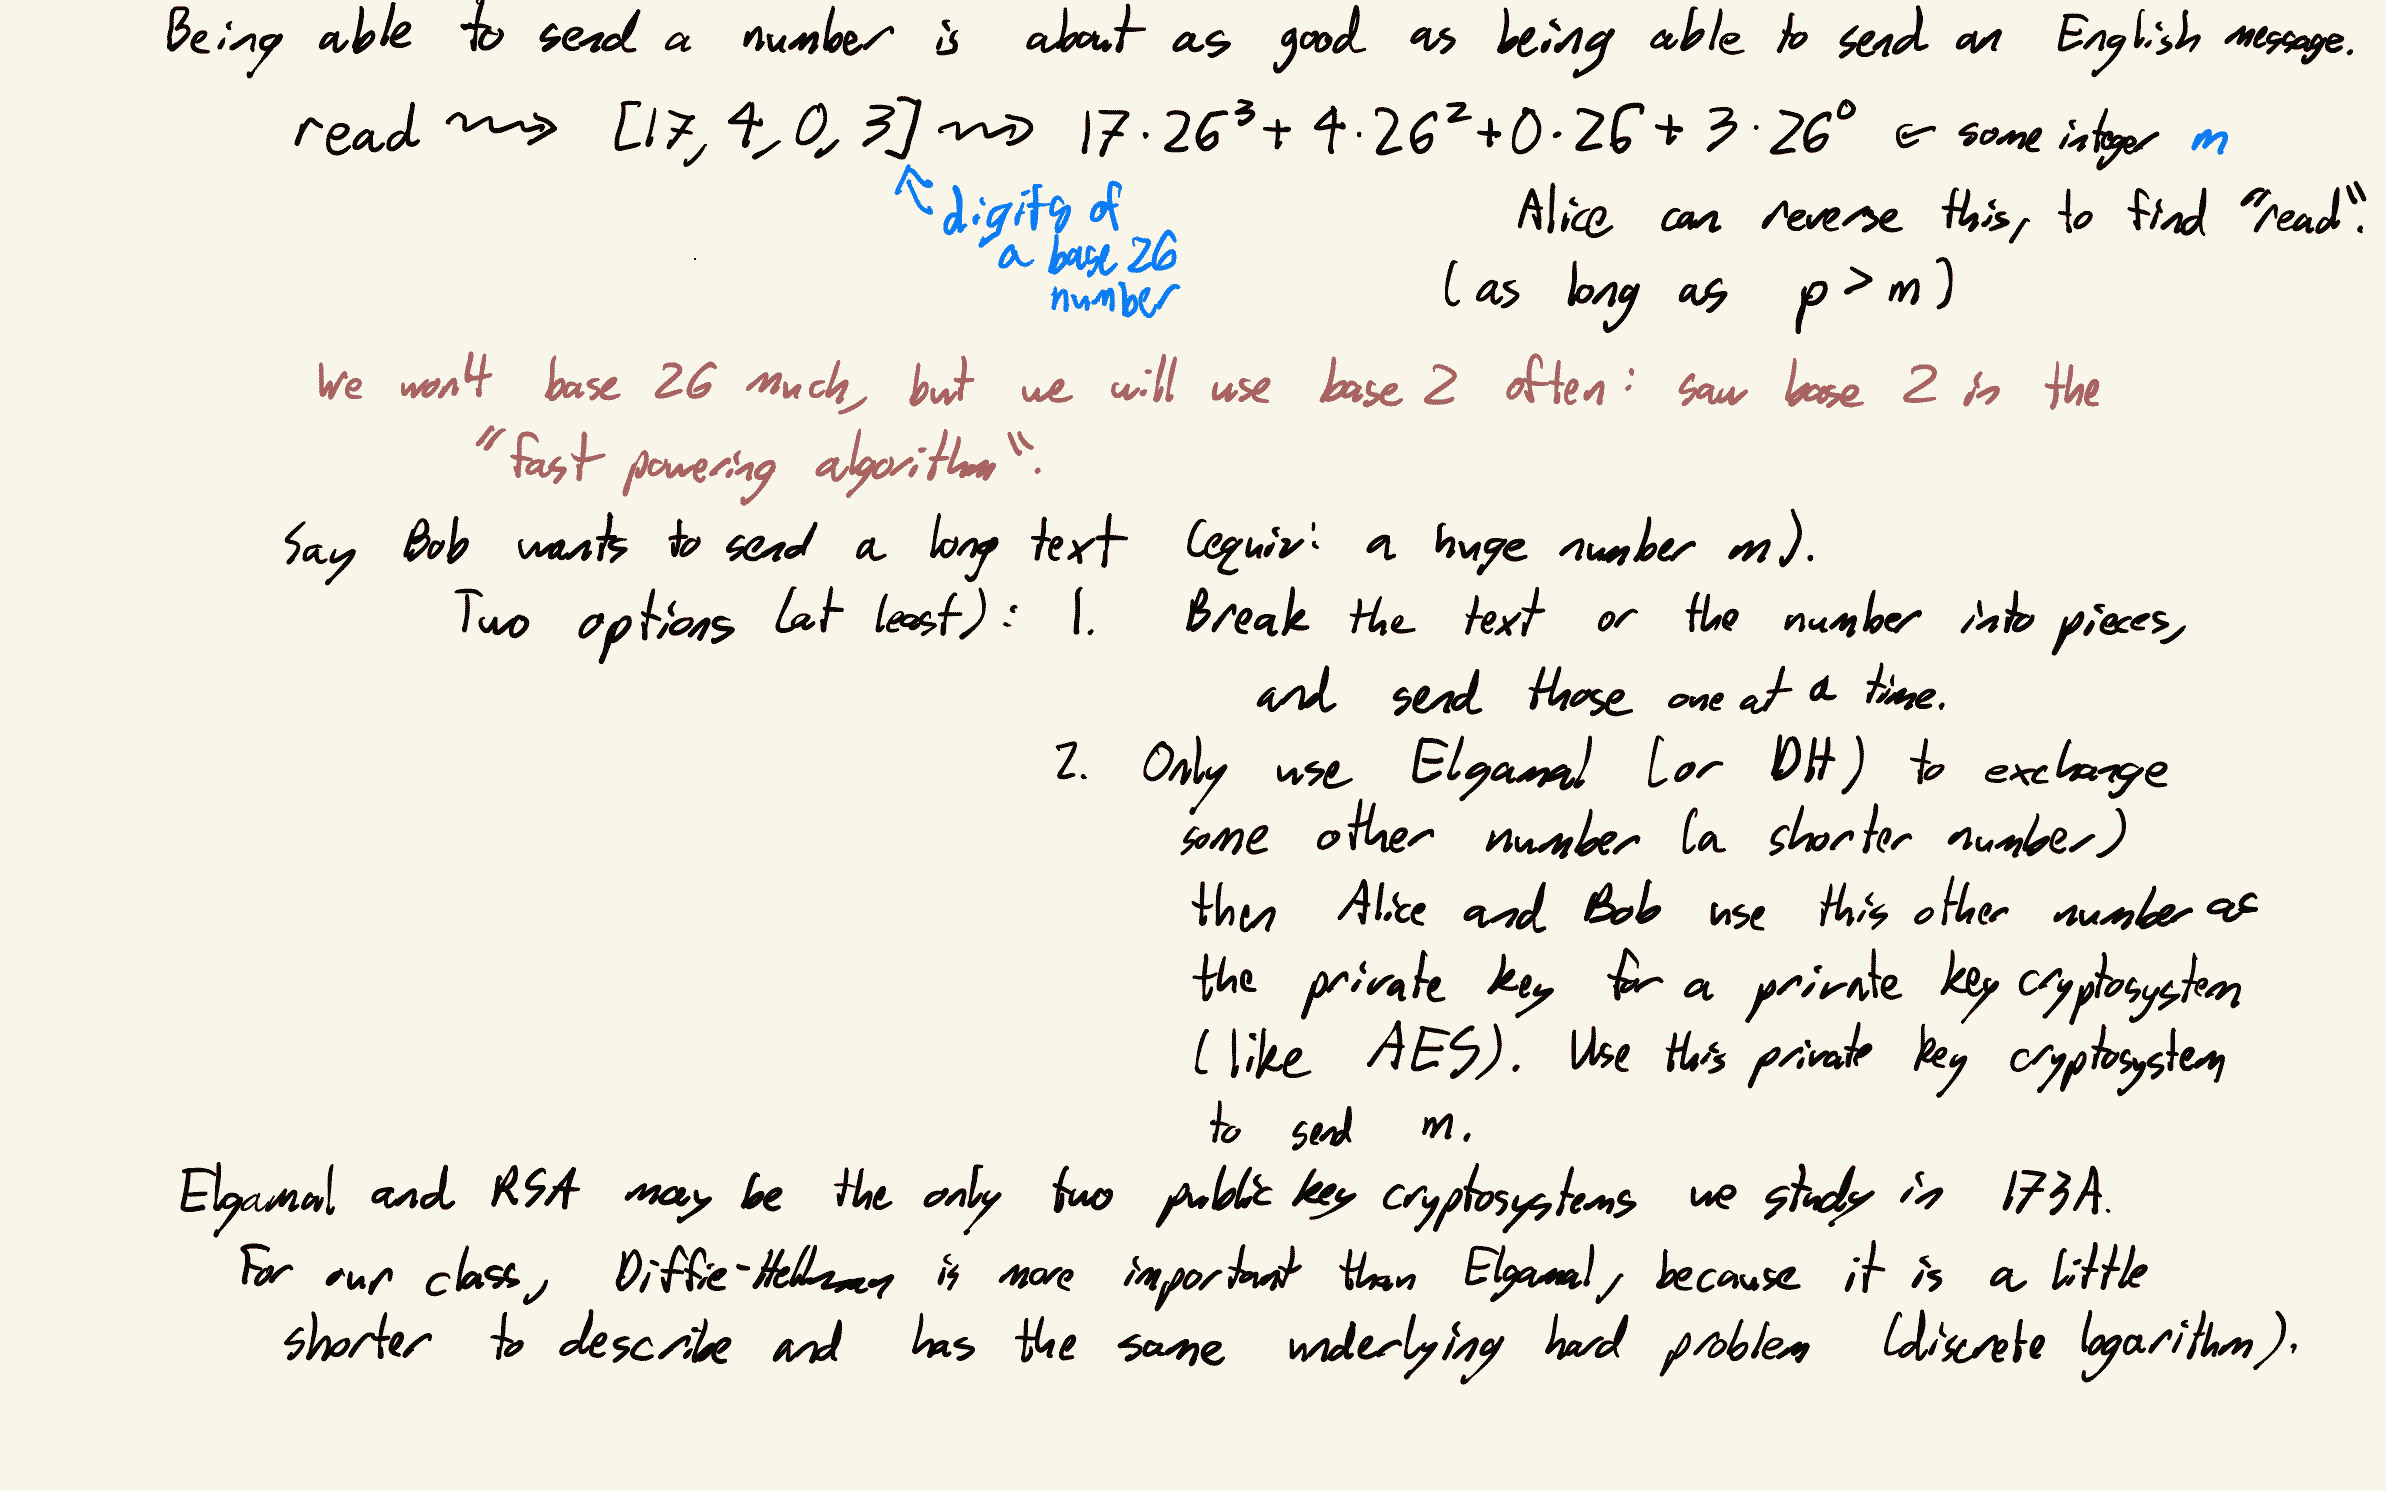 Being able to send a number is about as good as being able to send an English message.
read ⇝ [17, 4, 0, 3] ⇝ 17·26³ + 4·26² + 0·26 + 3·26⁰ ← some integer m
digits of
a base 26
number
Alice can reverse this, to find "read".
(as long as p > m)
We won't base 26 much, but we will use base 2 often: saw base 2 in the
"fast powering algorithm".
Say Bob wants to send a long text (equiv: a huge number m).
Two options (at least): 1. Break the text or the number into pieces,
and send those one at a time.
2. Only use Elgamal (or DH) to exchange
some other number (a shorter number)
then Alice and Bob use this other number as
the private key for a private key cryptosystem
(like AES). Use this private key cryptosystem
to send m.
Elgamal and RSA may be the only two public key cryptosystems we study in 173A.
For our class, Diffie-Hellman is more important than Elgamal, because it is a little
shorter to describe and has the same underlying hard problem (discrete logarithm).